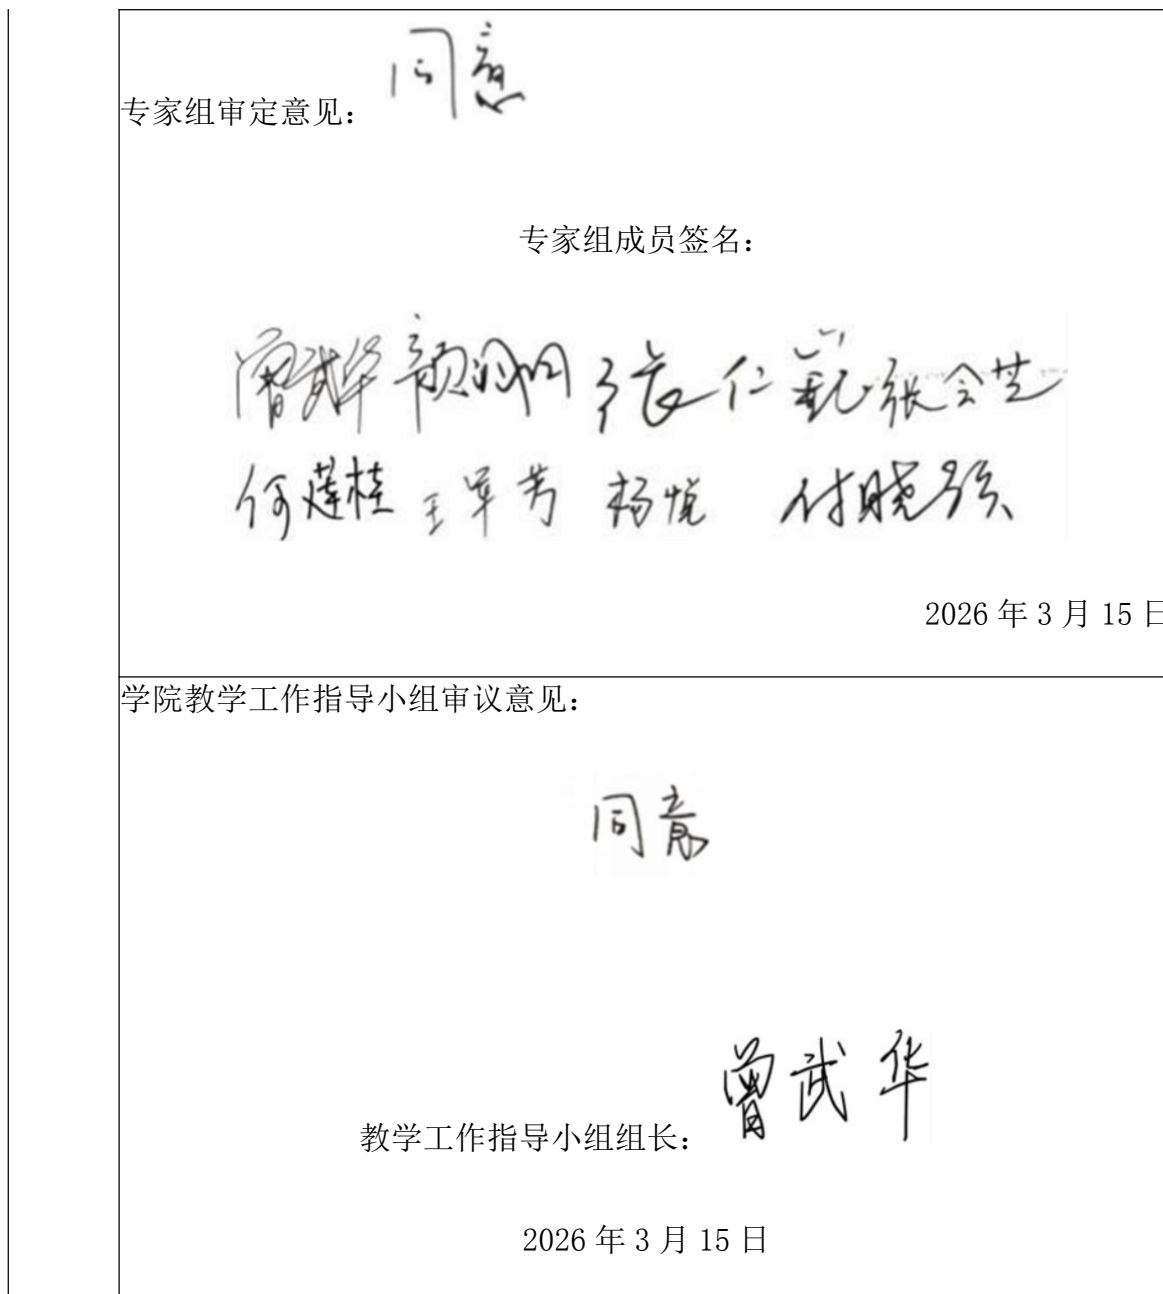 同意
专家组审定意见：
专家组成员签名：
曾武华 张仁 张会芝
何莲桂 王军芳 杨悦 付晓强
2026 年 3 月 15 日
学院教学工作指导小组审议意见：
同意
曾武华
教学工作指导小组组长：
2026 年 3 月 15 日